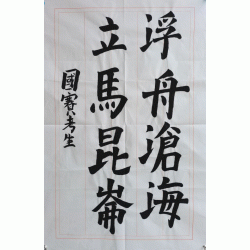 浮舟滄海
立馬昆崙
國賽考生